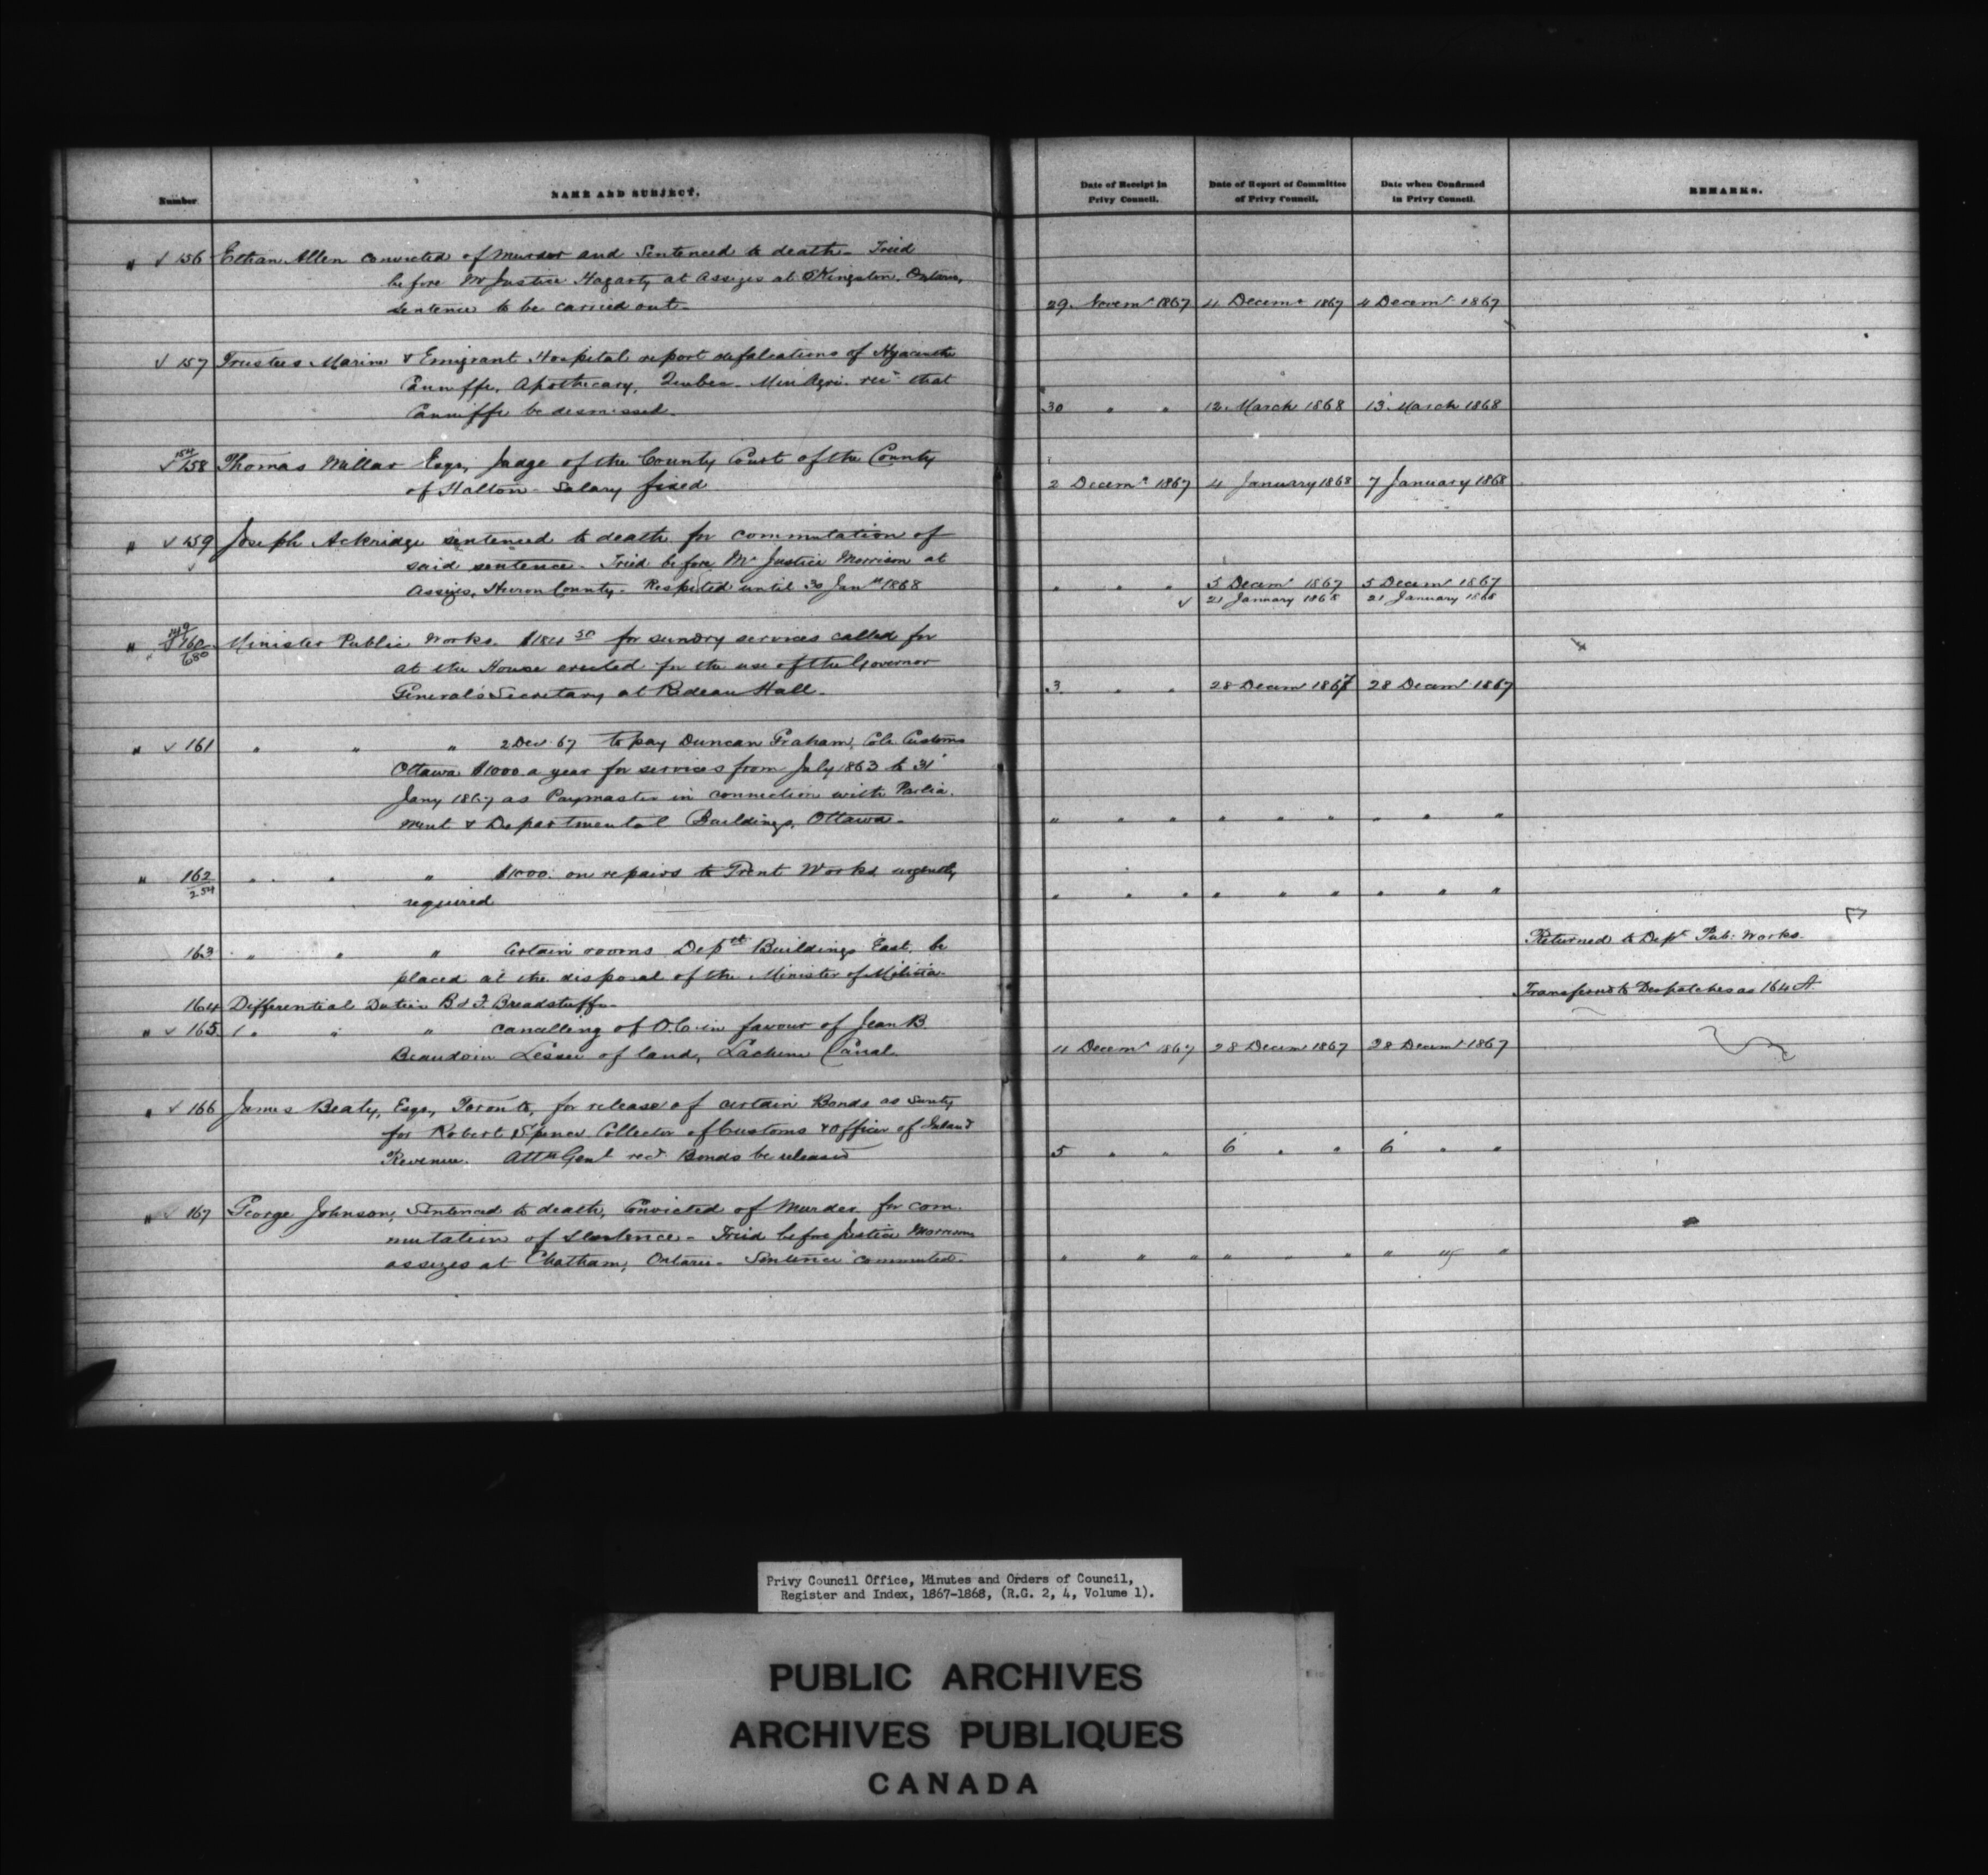 Number
NAME AND SUBJECT.
Date of Receipt in Privy Council.
Date of Report of Committee of Privy Council.
Date when Confirmed in Privy Council.
REMARKS.
" √ 156 Ethan Allen convicted of Murder and Sentenced to death - Tried
before Mr Justice Hagarty at Assizes at Kingston, Ontario,
Sentence to be carried out. 29. Novemr 1867 4 Decemr 1867 4 Decemr 1867
√ 157 Trustees Marine & Emigrant Hospital report defalcations of Hyacinthe
Canniffe, Apothecary, Quebec - Min Agri. recd that
Canniffe be dismissed. 30 " " 12 March 1868 13 March 1868
√ 154/158 Thomas Millar Esqr, Judge of the County Court of the County
of Halton - Salary fixed 2 Decemr 1867 4 January 1868 7 January 1868
" √ 159 Joseph Ackridge sentenced to death for commutation of
said sentence - Tried before Mr Justice Morrison at
Assizes, Huron County - Respited until 30 Jany 1868 " " " 5 Decemr 1867 5 Decemr 1867
√ 21 January 1868 21 January 1868
" 149/160/680 Minister Public Works. $184 50 for sundry services called for
at the House erected for the use of the Governor
General's Secretary at Rideau Hall. 3 " " 28 Decemr 1867 28 Decemr 1867
" √ 161 " " " 2 Decr 67 to pay Duncan Graham, Colr Customs
Ottawa $1000 a year for services from July 1863 to 31
Jany 1867 as Paymaster in connection with Parlia-
ment & Departmental Buildings, Ottawa - " " " " " " " " "
" 162/254 " " " $1000. on repairs to Trent Works urgently
required " " " " " " " " "
163 " " " Certain rooms Deptl Buildings East, be Returned to Dept Pub: Works.
placed at the disposal of the Minister of Militia
164 Differential Duties B & F. Breadstuffs - Transferred to Despatches as 164 A.
" √ 165 " " " cancelling of O.C. in favour of Jean B.
Beaudoin Lessee of land, Lachine Canal. 4 Decemr 1867 28 Decemr 1867 28 Decemr 1867
" √ 166 James Beaty, Esqr, Toronto, for release of certain Bonds as Surety
for Robert Spence Collector of Customs & Officer of Inland
Revenue. Atty Genl recd Bonds be released 5 " " 6 " " 6 " "
" √ 167 George Johnson, Sentenced to death, Convicted of Murder for com-
mutation of Sentence - Tried before Justice Morrison
assizes at Chatham, Ontario. Sentence commuted. " " " " " " " " "
Privy Council Office, Minutes and Orders of Council,
Register and Index, 1867-1868, (R.G. 2, 4, Volume 1).
PUBLIC ARCHIVES
ARCHIVES PUBLIQUES
CANADA